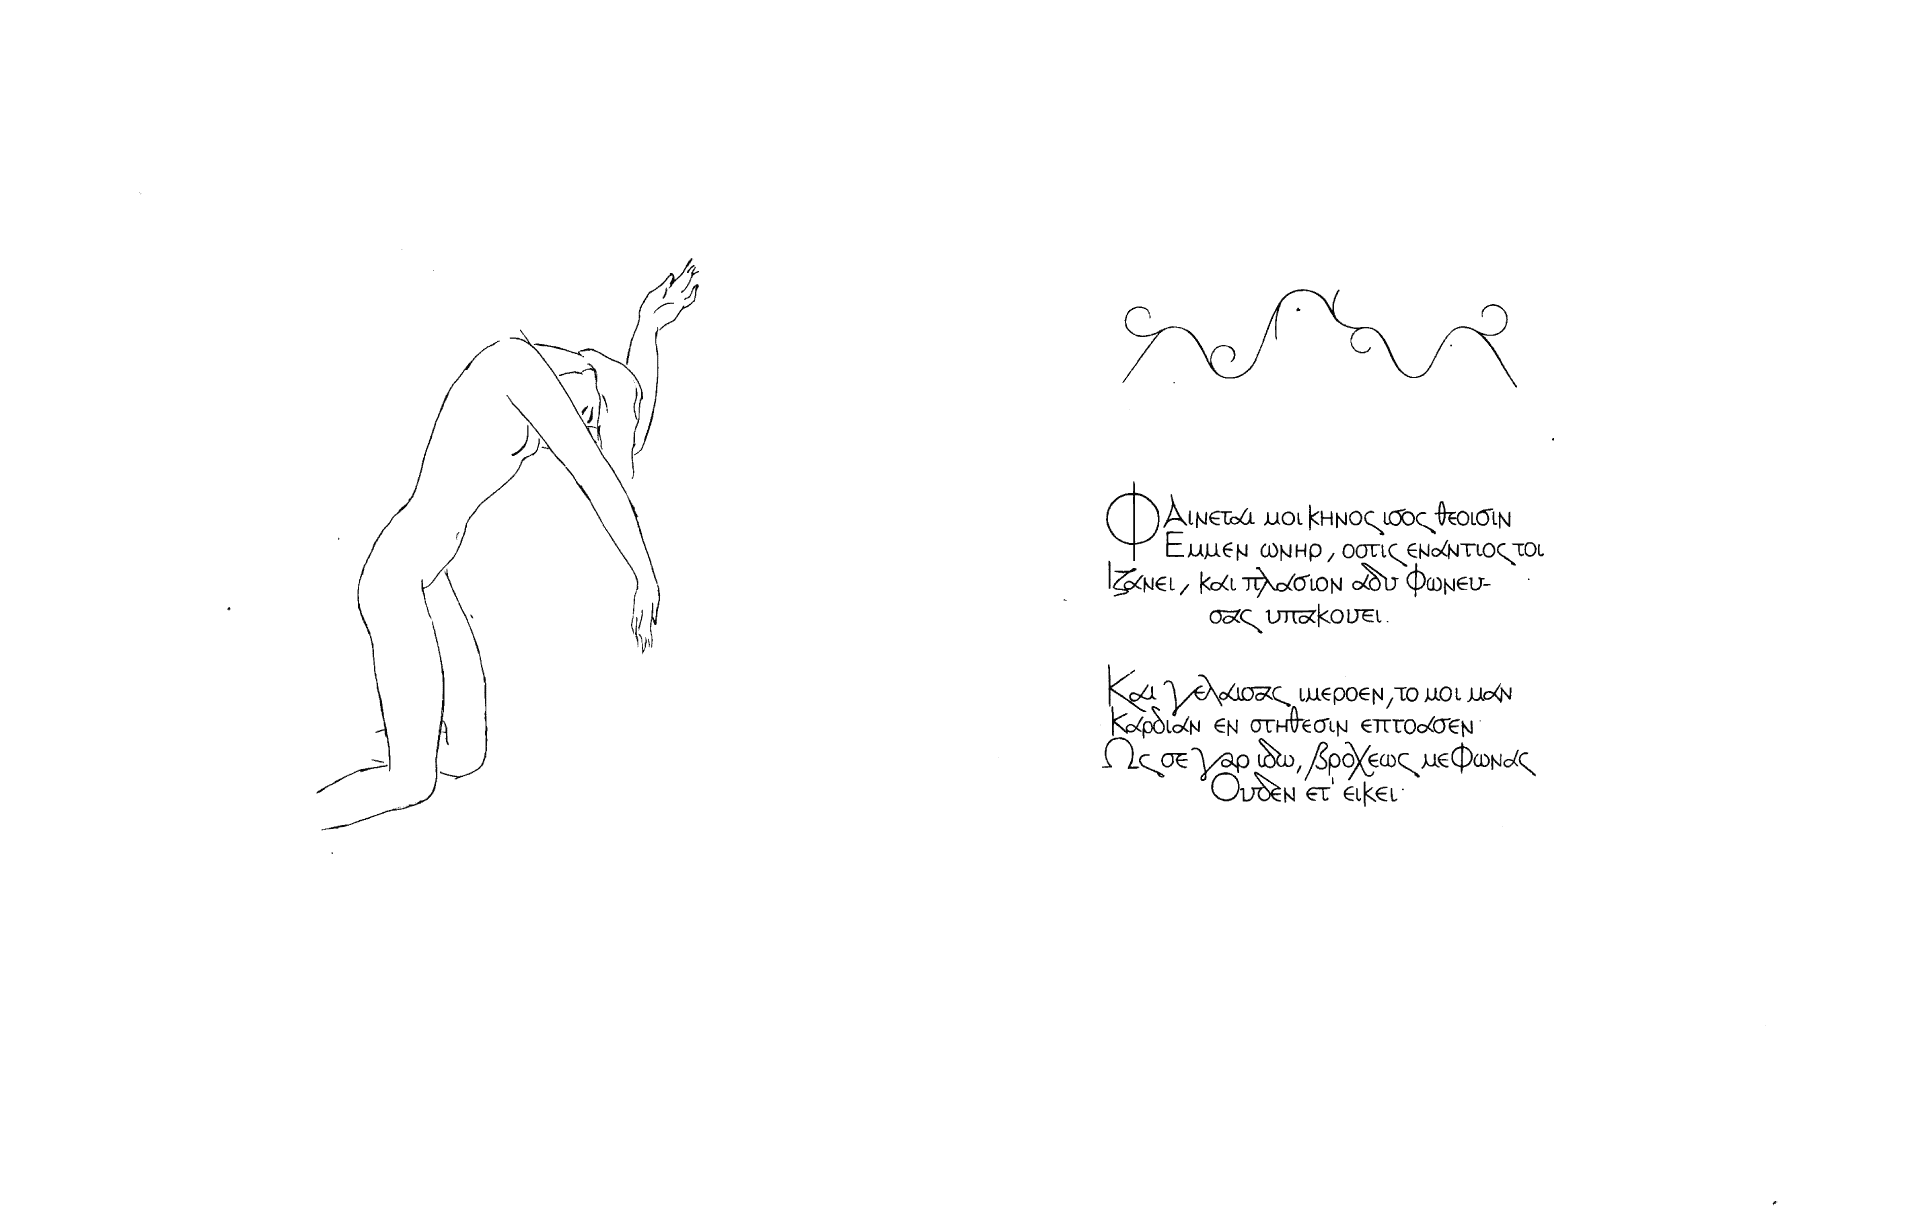 Φαινεται μοι κηνος ισος θεοισιν
Εμμεν ωνηρ, οστις εναντιος τοι
Ιζανει, και πλασιον αδυ φωνευ-
σας υπακουει.
Και γελαισας ιμεροεν, το μοι μαν
Καρδιαν εν στηθεσιν επτοασεν·
Ως σε γαρ ιδω, βροχεως με φωνας
Ουδεν ετ' εικει·